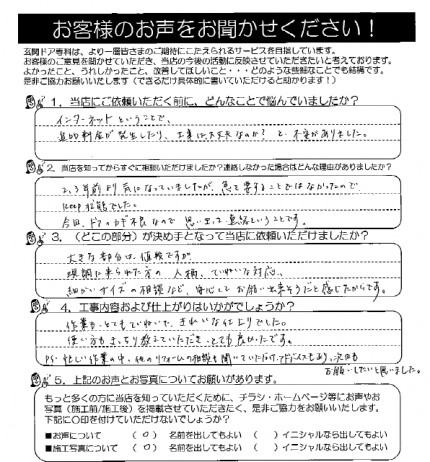 お客様のお声をお聞かせください！
玄関ドア専科は、より一層皆さまのご期待にこたえられるサービスを目指しています。
お客様のご意見を聞かせていただき、当店の今後の活動に反映させていただきたいと考えております。
よかったこと、うれしかったこと、改善してほしいこと・・・どのような些細なことでも結構です。
是非ご協力お願いいたします（できるだけ具体的に書いていただけると助かります！）
1. 当店にご依頼いただく前に、どんなことで悩んでいましたか？
インターネットということで、
追加料金が発生したり、工事は大丈夫なのか？と、不安がありました。
2 当店を知ってからすぐに相談いただけましたか？連絡しなかった場合はどんな理由がありましたか？
2、3年前より気になっていましたが、急を要することではなかったので
keep状態でした。
今回、ドアのカギ不良なので思い立って連絡ということです。
3. （どこの部分）が決め手となって当店に依頼いただけましたか？
大きな部分は、値段ですが、
現調に来られた方の人柄、ていねいな対応、
細かいサイズの相談など、安心してお願い出来そうだと感じたからです。
4. 工事内容および仕上がりはいかがでしょうか？
作業も、とてもていねいで、きれいな仕上りでした。
使い方もきっちり教えていただき、とても良かったです。
PS.忙しい作業の中、他のリフォームの相談も聞いていただけ、アドバイスもあり、次回も
お願いしたいと思いました。
5. 上記のお声とお写真についてお願いがあります。
もっと多くの方に当店を知っていただくために、チラシ・ホームページ等にお声やお
写真（施工前/施工後）を掲載させていただきたく、是非ご協力をお願いいたします。
下記に○印を付けていただけないでしょうか？
■お声について （○） 名前を出してもよい （ ）イニシャルなら出してもよい
■施工写真について （○） 名前を出してもよい （ ）イニシャルなら出してもよい